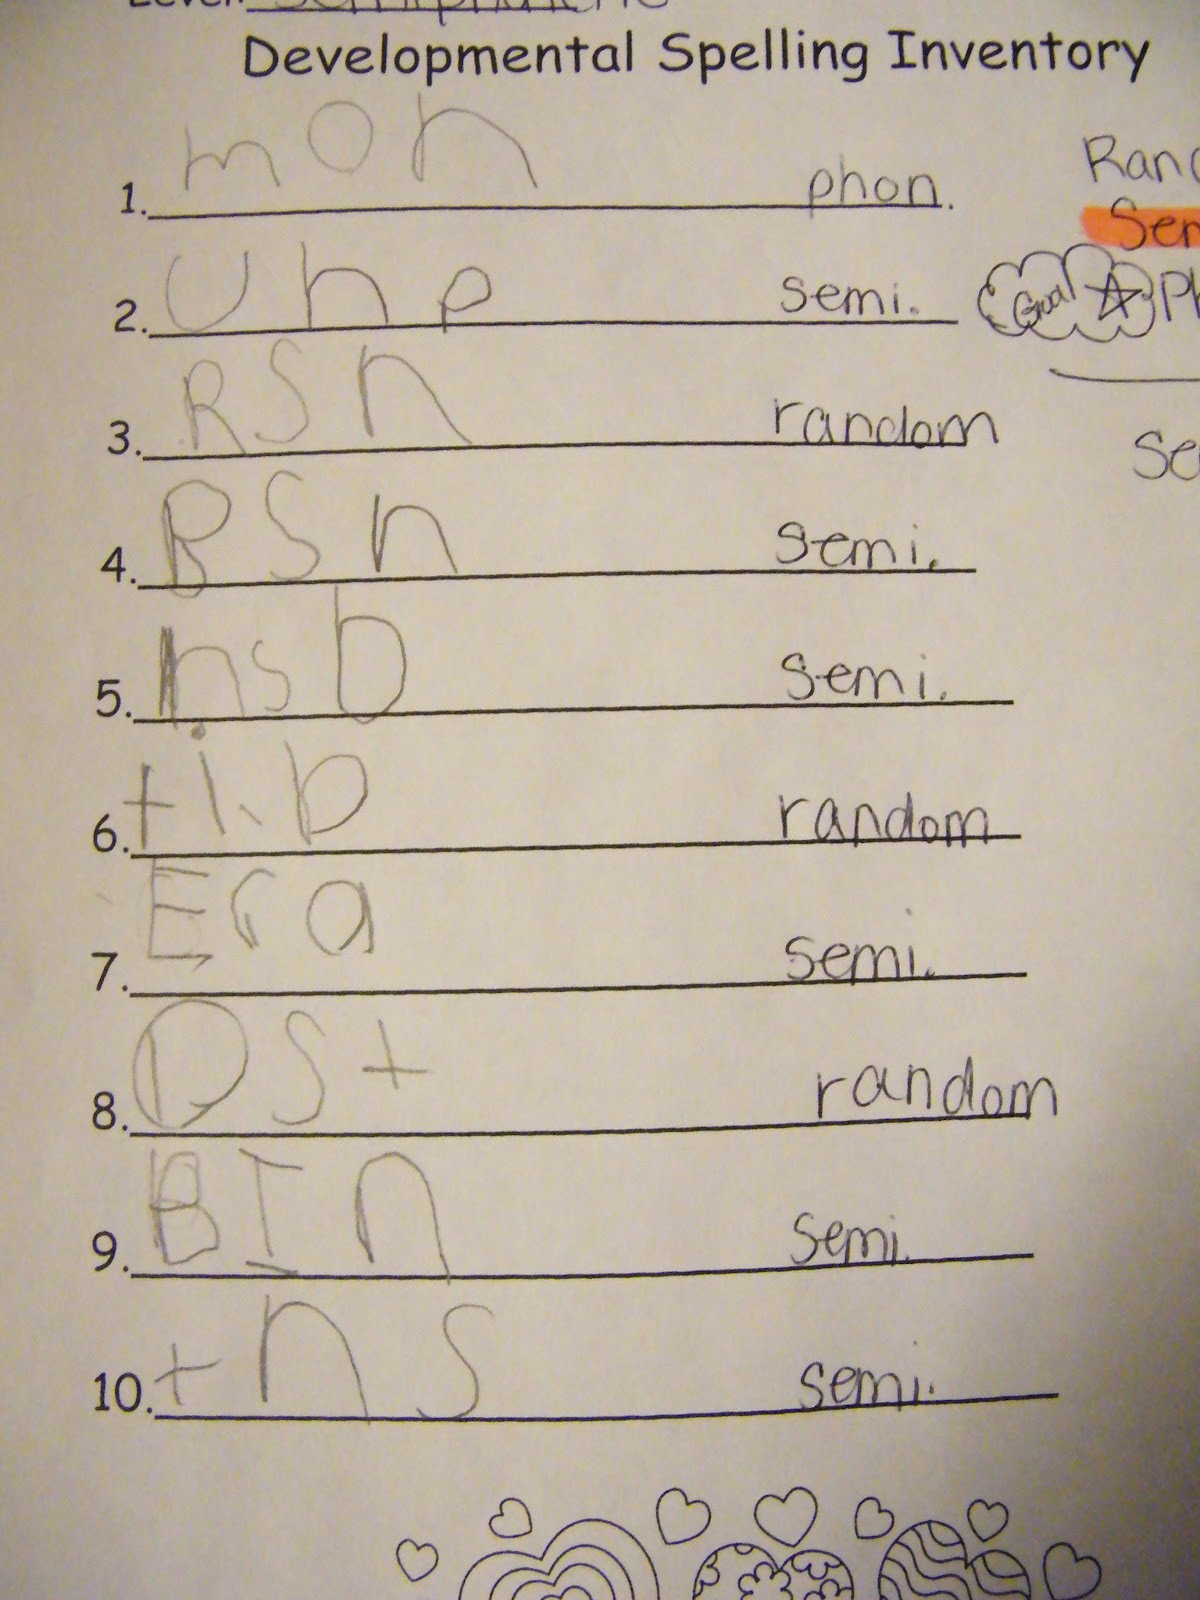 Level: Semiphonetic
Developmental Spelling Inventory
1. mon phon.
Ran
2. Uhp semi.
Sem
Goal Ph
3. RSn random
Se
4. BSn semi.
5. nsb semi.
6. tib random
7. Era semi.
8. DSt random
9. BIn semi.
10. tns semi.